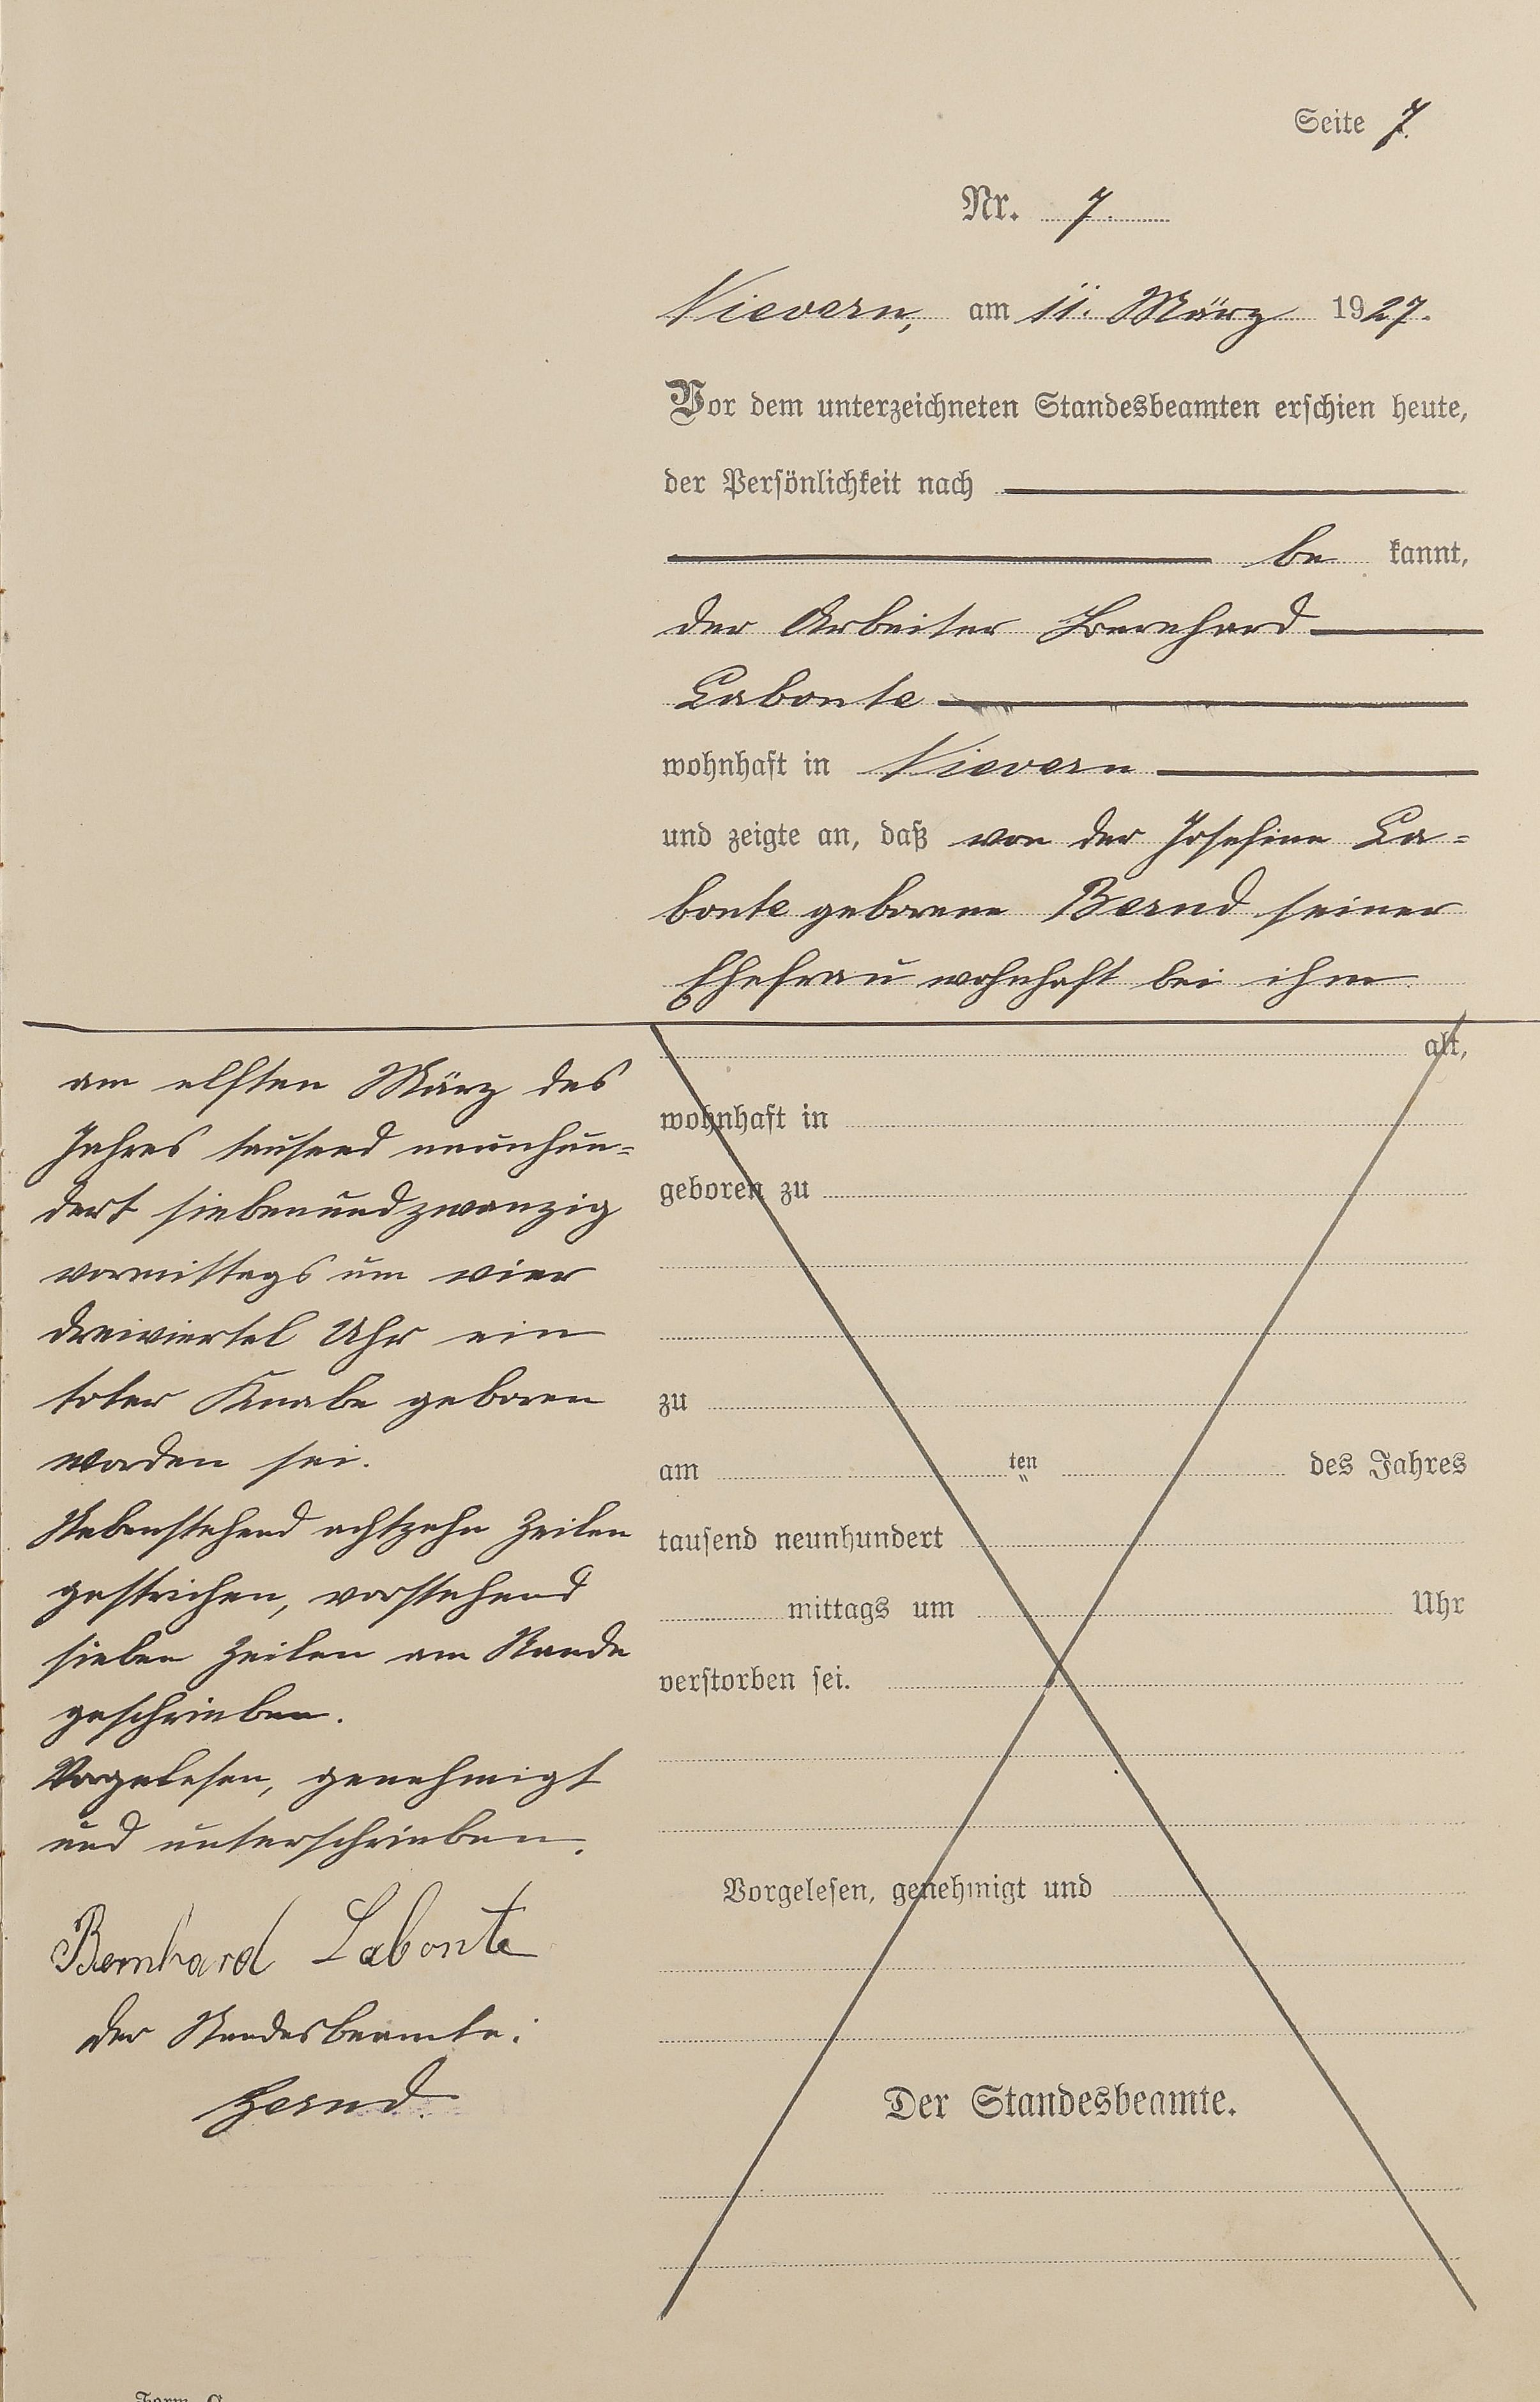 Seite 7.
Nr. 7.
Nievern, am 11. März 1927.
Vor dem unterzeichneten Standesbeamten erschien heute,
der Persönlichkeit nach
be kannt,
der Arbeiter Bernhard
Labonte
wohnhaft in Nievern
und zeigte an, daß von der Josefine La-
bonte geborene Bernd seiner
Ehefrau wohnhaft bei ihm
am elften März des
Jahres tausend neunhun-
dert siebenundzwanzig
vormittags um vier
dreiviertel Uhr ein
toter Knabe geboren
worden sei.
Nebenstehend achtzehn Zeilen
gestrichen, vorstehend
sieben Zeilen am Rande
geschrieben.
Vorgelesen, genehmigt
und unterschrieben.
Bernhard Labonte
Der Standesbeamte:
alt,
wohnhaft in
geboren zu
zu
am ten des Jahres
tausend neunhundert
mittags um Uhr
verstorben sei.
Vorgelesen, genehmigt und
Der Standesbeamte.